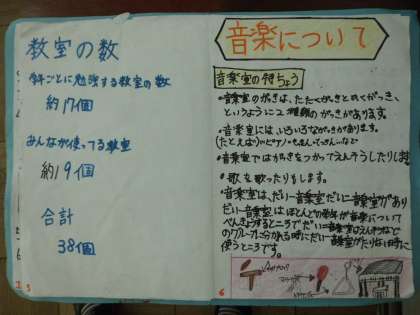 教室の数
学年ごとに勉強する教室の数
約17個
みんなが使ってる教室
約19個
合計
38個
5
音楽について
音楽室の特ちょう
・音楽室のがっきは、たたくがっきとひくがっき、
というように2種類のがっきがあります。
・音楽室には、いろいろながっきがあります。
(たとえば)ピアノ・もっきん・てっきん…など
・音楽室ではがっきをつかってえんそうしたり
・歌を歌ったりもします。
・音楽室は、だい一音楽室だい二音楽室があり
だい一音楽室はほとんどの学年が音楽について
べんきょうするところでだい二音楽室は
のグループに分かれる時にだい一音楽室がたりない時に
使うところです。
6